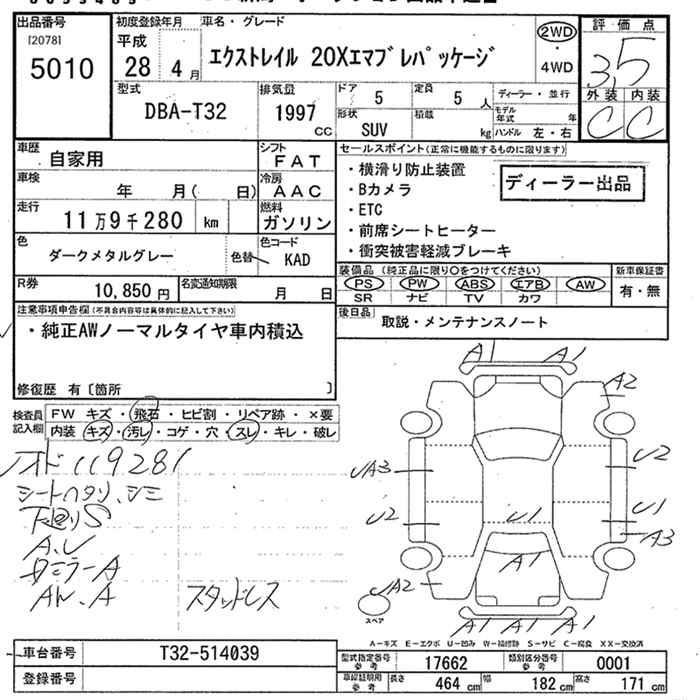 出品番号
[2078]
5010
初度登録年月
平成
28年 4月
車名・グレード
エクストレイル 20Xエマブレパッケージ
2WD
・
4WD
評価点
3.5
外装 内装
C C
型式
DBA-T32
排気量
1997
CC
ドア
5
定員
5人
ディーラー・並行
形状
SUV
積載
kg
モデル年式 年
ハンドル 左・右
車歴
自家用
シフト
FAT
車検
年 月( 日)
冷房
AAC
走行
11万9千280 km
燃料
ガソリン
色
ダークメタルグレー
色替
色コード
KAD
R券
10,850円
名変通知期限
月 日
セールスポイント(正常に機能するものに限ります)
・横滑り防止装置
・Bカメラ
・ETC
・前席シートヒーター
・衝突被害軽減ブレーキ
ディーラー出品
装備品(純正品に限り○をつけてください)
PS PW ABS エアB AW
SR ナビ TV カワ
新車保証書
有・無
後日品
取説・メンテナンスノート
注意事項申告欄(不具合内容等は具体的に記入して下さい)
・純正AWノーマルタイヤ車内積込
修復歴 有〔箇所 〕
検査員記入欄
FW キズ・飛石・ヒビ割・リペア跡・×要
内装 キズ・汚レ・コゲ・穴・スレ・キレ・破レ
119281
シートヘタリ、シミ
下廻りS
A.U
ミラーA
AW.A
スタッドレス
A1 A1
A2
UA3
U2
U2
U1
U1
A3
A1
A2
スペア
A1 A1 A1
A-キズ E-エクボ U-凹み W-補修跡 S-サビ C-腐食 XX-交換済
車台番号
T32-514039
登録番号
型式指定番号参考
17662
類別区分番号参考
0001
車検証明用参考
長さ 464 cm 幅 182 cm 高さ 171 cm